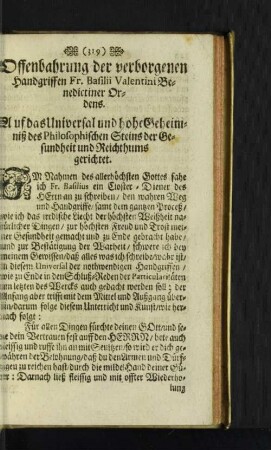 (319)
Offenbahrung der verborgenen
Handgriffen Fr. Basilii Valentini Be-
nedictiner Or-
dens.
Auf das Universal und hohe Geheim-
niß des Philosophischen Steins der Ge-
sundheit und Reichthums
gerichtet.
IM Nahmen des allerhöchsten Gottes fahe
ich Fr. Basilius ein Closter-Diener des
HErrn an zu schreiben/ den wahren Weg
und Handgriffe/ samt dem gantzen Proceß/
wie ich das irrdische Liecht der höchsten Weißheit na-
türlicher Dingen/ zur höchsten Freud und Trost mei-
ner Gesundheit gemacht und zu Ende gebracht habe/
und zur Bestättigung der Warheit/ schwere ich bey
meinem Gewissen/ daß alles was ich schreibe/ wahr ist/
in diesem Universal der nothwendigen Handgriffen/
wie zu Ende in den Schluß-Reden der Particulariteten
zum letzten des Wercks auch gedacht werden soll; der
Anfang aber trifft mit dem Mittel und Außgang über-
ein/ darum folge diesem Unterricht und Kunst/ wie her-
nach folgt:
Für allen Dingen fürchte deinen GOtt/ und se-
tze dein Vertrauen fest auff den HERRN/ bete auch
fleissig und ruffe ihn an mit Seufftzen/ so wird er dich ge-
währen der Belohnung/ daß du den Armen und Dürff-
tigen zu reichen hast durch die milde Hand deiner Gü-
ter: Darnach ließ fleissig und mit offter Wiederho-
lung